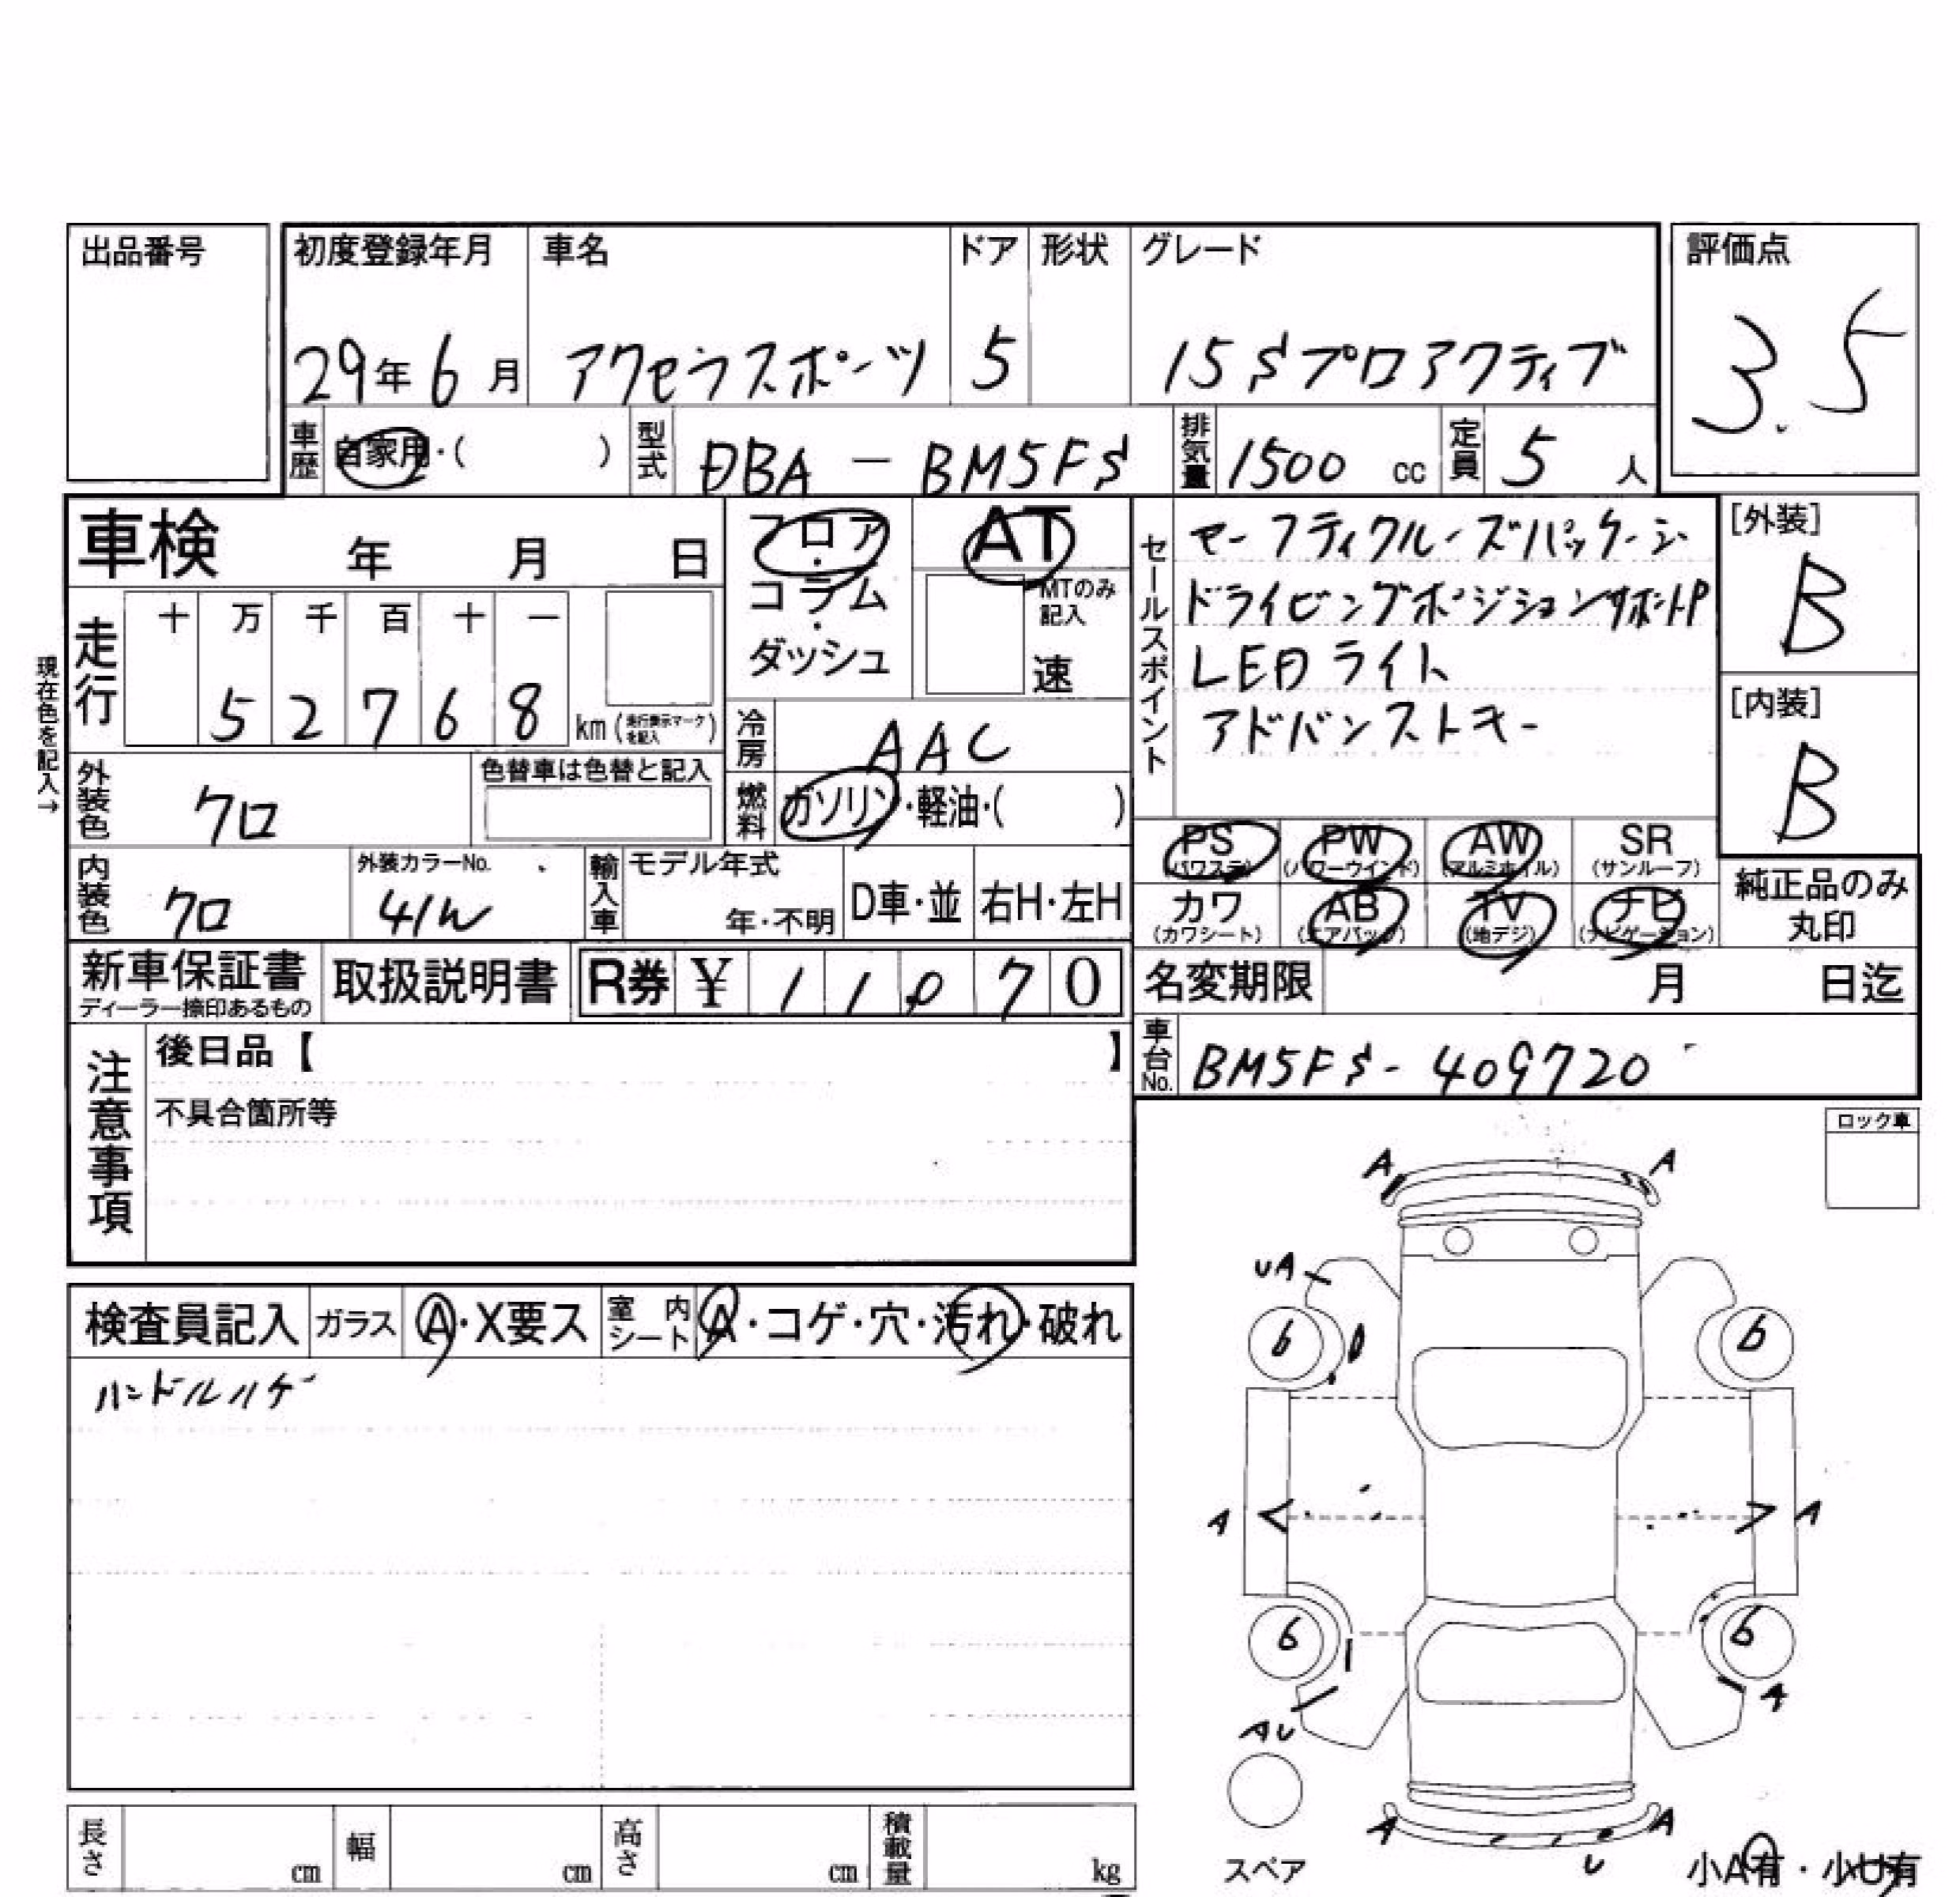 出品番号
初度登録年月 車名 ドア 形状 グレード 評価点
29年 6月 アクセラスポーツ 5 15Sプロアクティブ 3.5
車歴 自家用・( ) 型式 DBA - BM5FS 排気量 1500 cc 定員 5 人
車検 年 月 日
フロア・コラム・ダッシュ
AT
MTのみ記入
速
セールスポイント
セーフティクルーズパッケージ
ドライビングポジションサポートP
LEDライト
アドバンストキー
[外装]
B
[内装]
B
現在色を記入→
走行 十 万 千 百 十 一
5 2 7 6 8 km (走行表示マークを記入)
冷房 AAC
外装色 クロ 色替車は色替と記入
燃料 ガソリン・軽油・( )
PS (パワステ) PW (パワーウインド) AW (アルミホイル) SR (サンルーフ)
カワ (カワシート) AB (エアバッグ) TV (地デジ) ナビ (ナビゲーション)
純正品のみ
丸印
内装色 クロ 外装カラーNo. 41W 輸入車 モデル年式 年・不明 D車・並 右H・左H
新車保証書 ディーラー捺印あるもの 取扱説明書 R券 ¥ 1 1 0 7 0
名変期限 月 日迄
車台No. BM5FS-409720
注意事項
後日品【 】
不具合箇所等
ロック車
検査員記入 ガラス A・X要ス 室内シート A・コゲ・穴・汚れ・破れ
ハンドルハゲ
A A
UA
6 6
A A
6 6
AU A
A A
U
スペア
小A有・小U有
長さ cm 幅 cm 高さ cm 積載量 kg